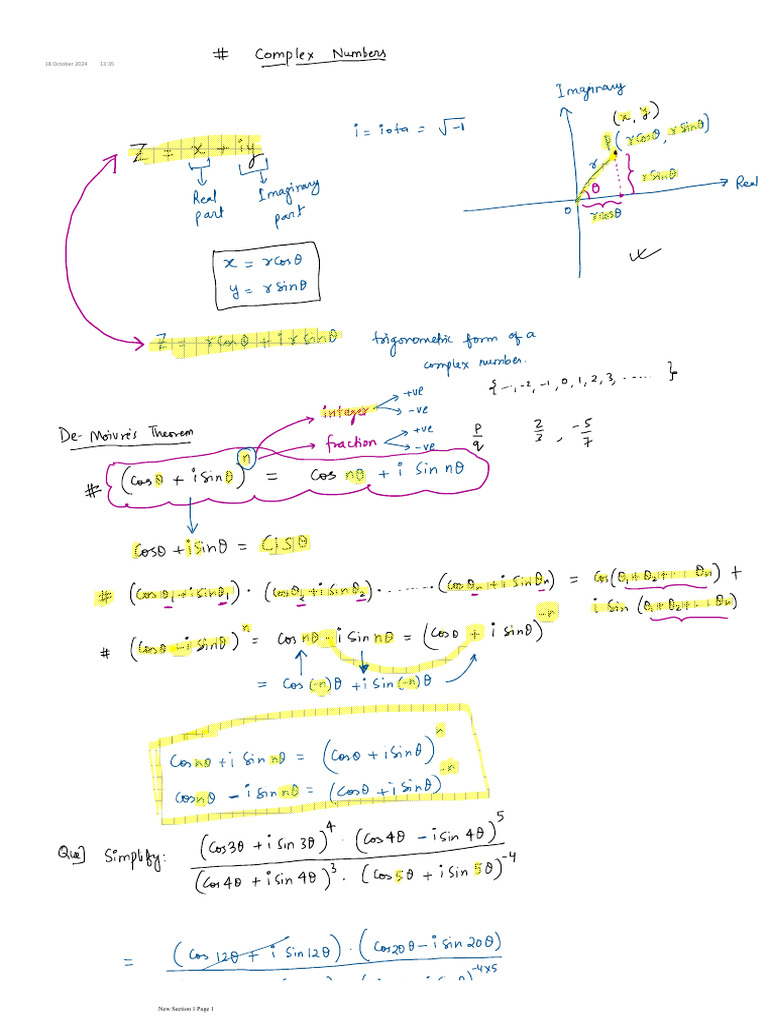 # Complex Numbers
18 October 2024 13:35
Imaginary
i = iota = √-1
(x, y)
P (rcosθ, rsinθ)
Z = x + iy
r
θ
rsinθ
Real
O
rcosθ
Real part
Imaginary part
x = rcosθ
y = rsinθ
Z = rcosθ + i rsinθ
trigonometric form of a
complex number.
{-,-2, -1, 0, 1, 2, 3, ...... }
integer
+ve
-ve
fraction
+ve
-ve
p/q 2/3 , -5/7
De-Moivre's Theorem
# (Cosθ + i Sinθ)^n = Cos nθ + i Sin nθ
Cosθ + i Sinθ = CISθ
# (Cosθ₁ + i Sinθ₁) · (Cosθ₂ + i Sinθ₂) · ...... (Cosθn + i Sinθn) = Cos(θ₁+θ₂+...θn) +
i Sin (θ₁+θ₂+...θn)
# (Cosθ - i Sinθ)^n = Cos nθ - i Sin nθ = (Cosθ + i Sinθ)^-n
= Cos(-n)θ + i Sin(-n)θ
Cos nθ + i Sin nθ = (Cosθ + i Sinθ)^n
Cos nθ - i Sin nθ = (Cosθ + i Sinθ)^-n
Que] Simplify: (Cos3θ + i Sin 3θ)^4 · (Cos4θ - i Sin 4θ)^5
(Cos4θ + i Sin 4θ)^3 · (Cos 5θ + i Sin 5θ)^-4
= (Cos 12θ + i Sin 12θ) · (Cos20θ - i Sin 20θ)
-4×5
New Section 1 Page 1